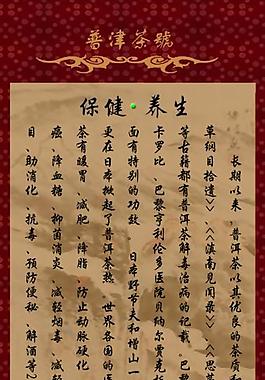 普津茶號
保健·养生
长期以来,普洱茶以其优良的茶质和
草纲目拾遗》、《滇南见闻录》、《思茅
等古籍都有普洱茶解毒治病的记载。巴黎
卡罗比、巴黎亨利伦多医院贝纳尔贾克托
面有特别的功效 日本野节夫和增山一
更在日本掀起了普洱茶热 世界各国的医
茶有暖胃、减肥、降脂、防止动脉硬化
癌、降血糖、抑菌消炎、减轻烟毒、减轻
目、助消化 抗毒、预防便秘 解酒等2